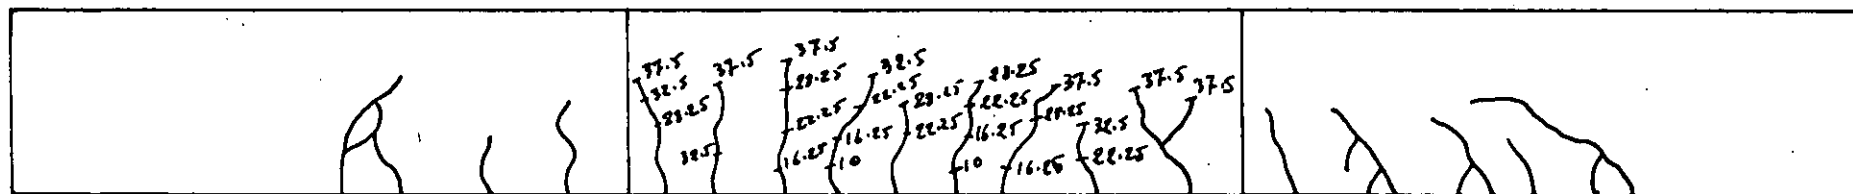 37.5
32.5
28.25
37.5
32.5
37.5
28.25
22.25
16.25
32.5
22.25
16.25
10
28.25
22.25
28.25
22.25
16.25
10
37.5
28.25
16.25
32.5
22.25
37.5
37.5